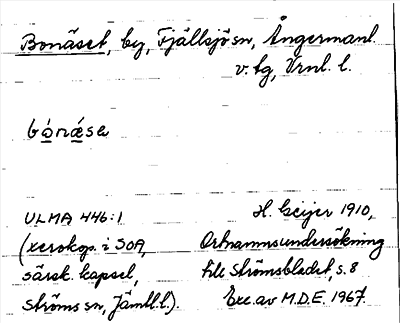 Bonäset, by, Fjällsjö sn, Ångermanl.
v. tg, Vrnl. l.
bónǽsa
ULMA 446:1
(xerokop. i SOA,
särsk. kapsel,
Ströms sn, Jämtl. l.).
H. Geijer 1910,
Ortnamnsundersökning
till Strömsbladet, s. 8
Exc. av M.D.E. 1967.